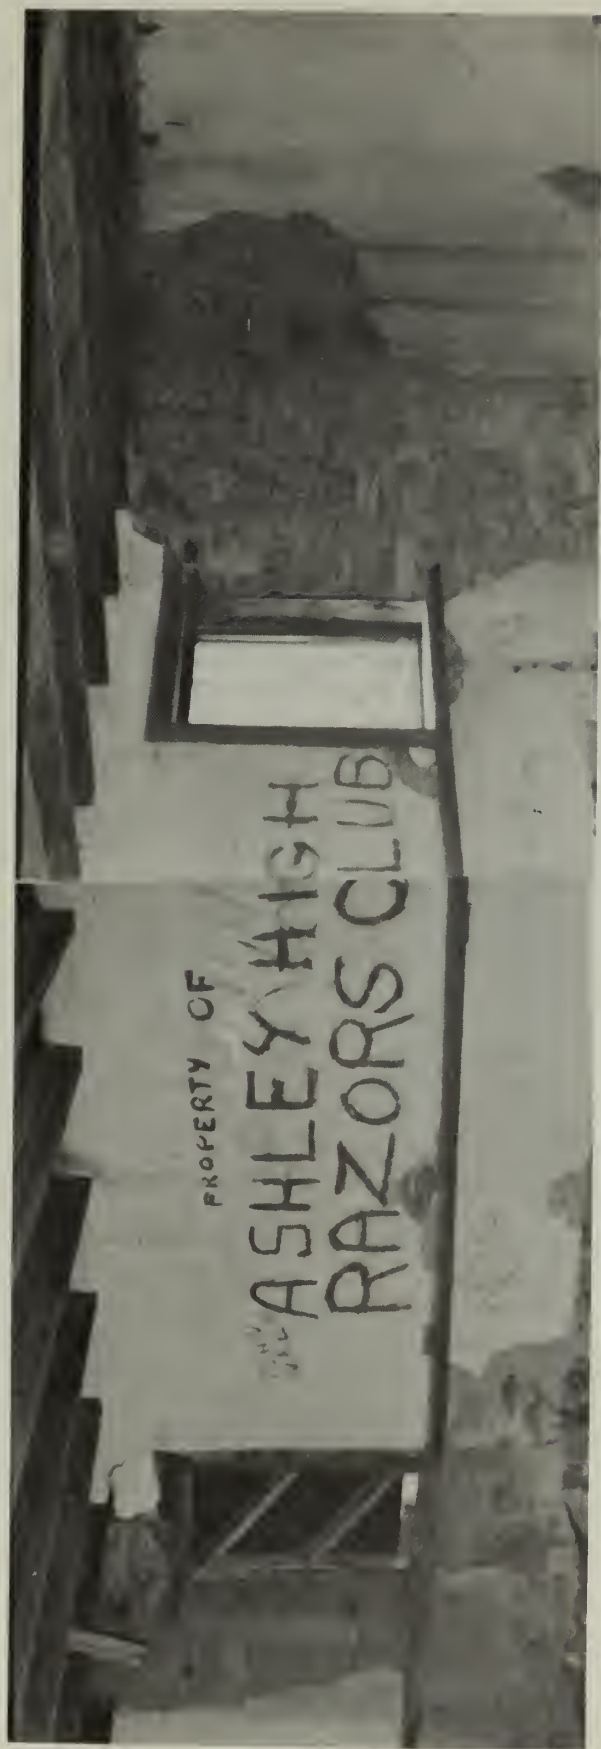 PROPERTY OF
ASHLEY HIGH
RAZORS CLUB